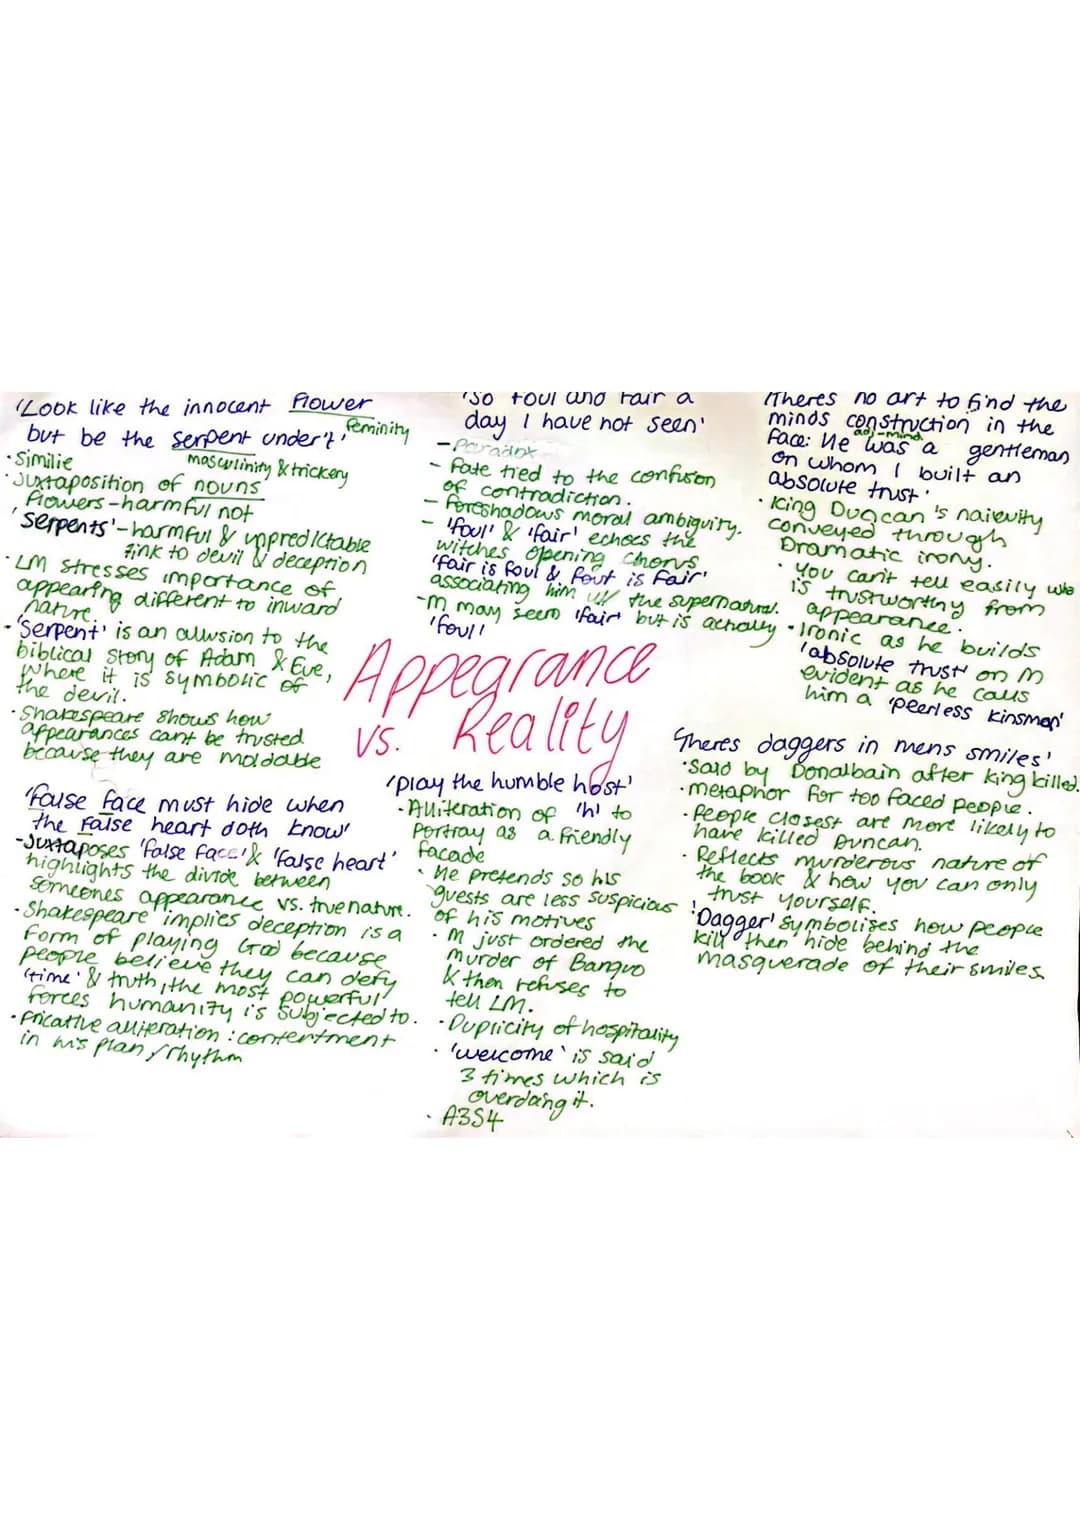 'Look like the innocent flower
feminity
but be the serpent under't'
masculinity & trickery
·Similie
·Juxtaposition of nouns
Flowers-harmful not
'Serpents'-harmful & unpredictable
link to devil & deception
·LM stresses importance of
appearing different to inward
nature.
·'Serpent' is an allusion to the
biblical story of Adam & Eve,
where it is symbolic of
the devil.
·Shakespeare shows how
appearances cant be trusted
because they are moldable
'false face must hide when
the false heart doth know'
-Juxtaposes 'false face' & 'false heart'
highlights the divide between
someones appearance vs. true nature.
·Shakespeare implies deception is a
form of playing God because
people believe they can defy
'time' & truth, the most powerful
forces humanity is subjected to.
·fricative alliteration : contentment
in his plan / rhythm
'So foul and fair a
day I have not seen'
- Paradox
- Fate tied to the confusion
of contradiction.
- foreshadows moral ambiguity.
- 'foul' & 'fair' echoes the
witches opening chorus
'fair is foul & fout is fair'
associating him w/ the supernatural.
-M may seem 'fair' but is actually
'foul'
Appearance
vs. Reality
'play the humble host'
·Alliteration of 'h' to
portray as a friendly
facade
·He pretends so his
guests are less suspicious
of his motives
·M just ordered the
murder of Banquo
& then refuses to
tell LM.
·Duplicity of hospitality
·'welcome' is said
3 times which is
overdoing it.
·A3S4
'Theres no art to find the
minds construction in the
adj-mind
face: He was a gentleman
on whom I built an
absolute trust'
·King Duncan's naievity
conveyed through
Dramatic irony.
·You can't tell easily who
is trustworthy from
appearance.
·Ironic as he builds
'absolute trust' on M
evident as he calls
him a 'peerless kinsman'
'Theres daggers in mens smiles'
·Said by Donalbain after king killed.
·metaphor for too faced people.
·People closest are more likely to
have killed Duncan.
·Reflects murderous nature of
the book & how you can only
trust yourself.
'Dagger' symbolises how people
kill then hide behind the
masquerade of their smiles.